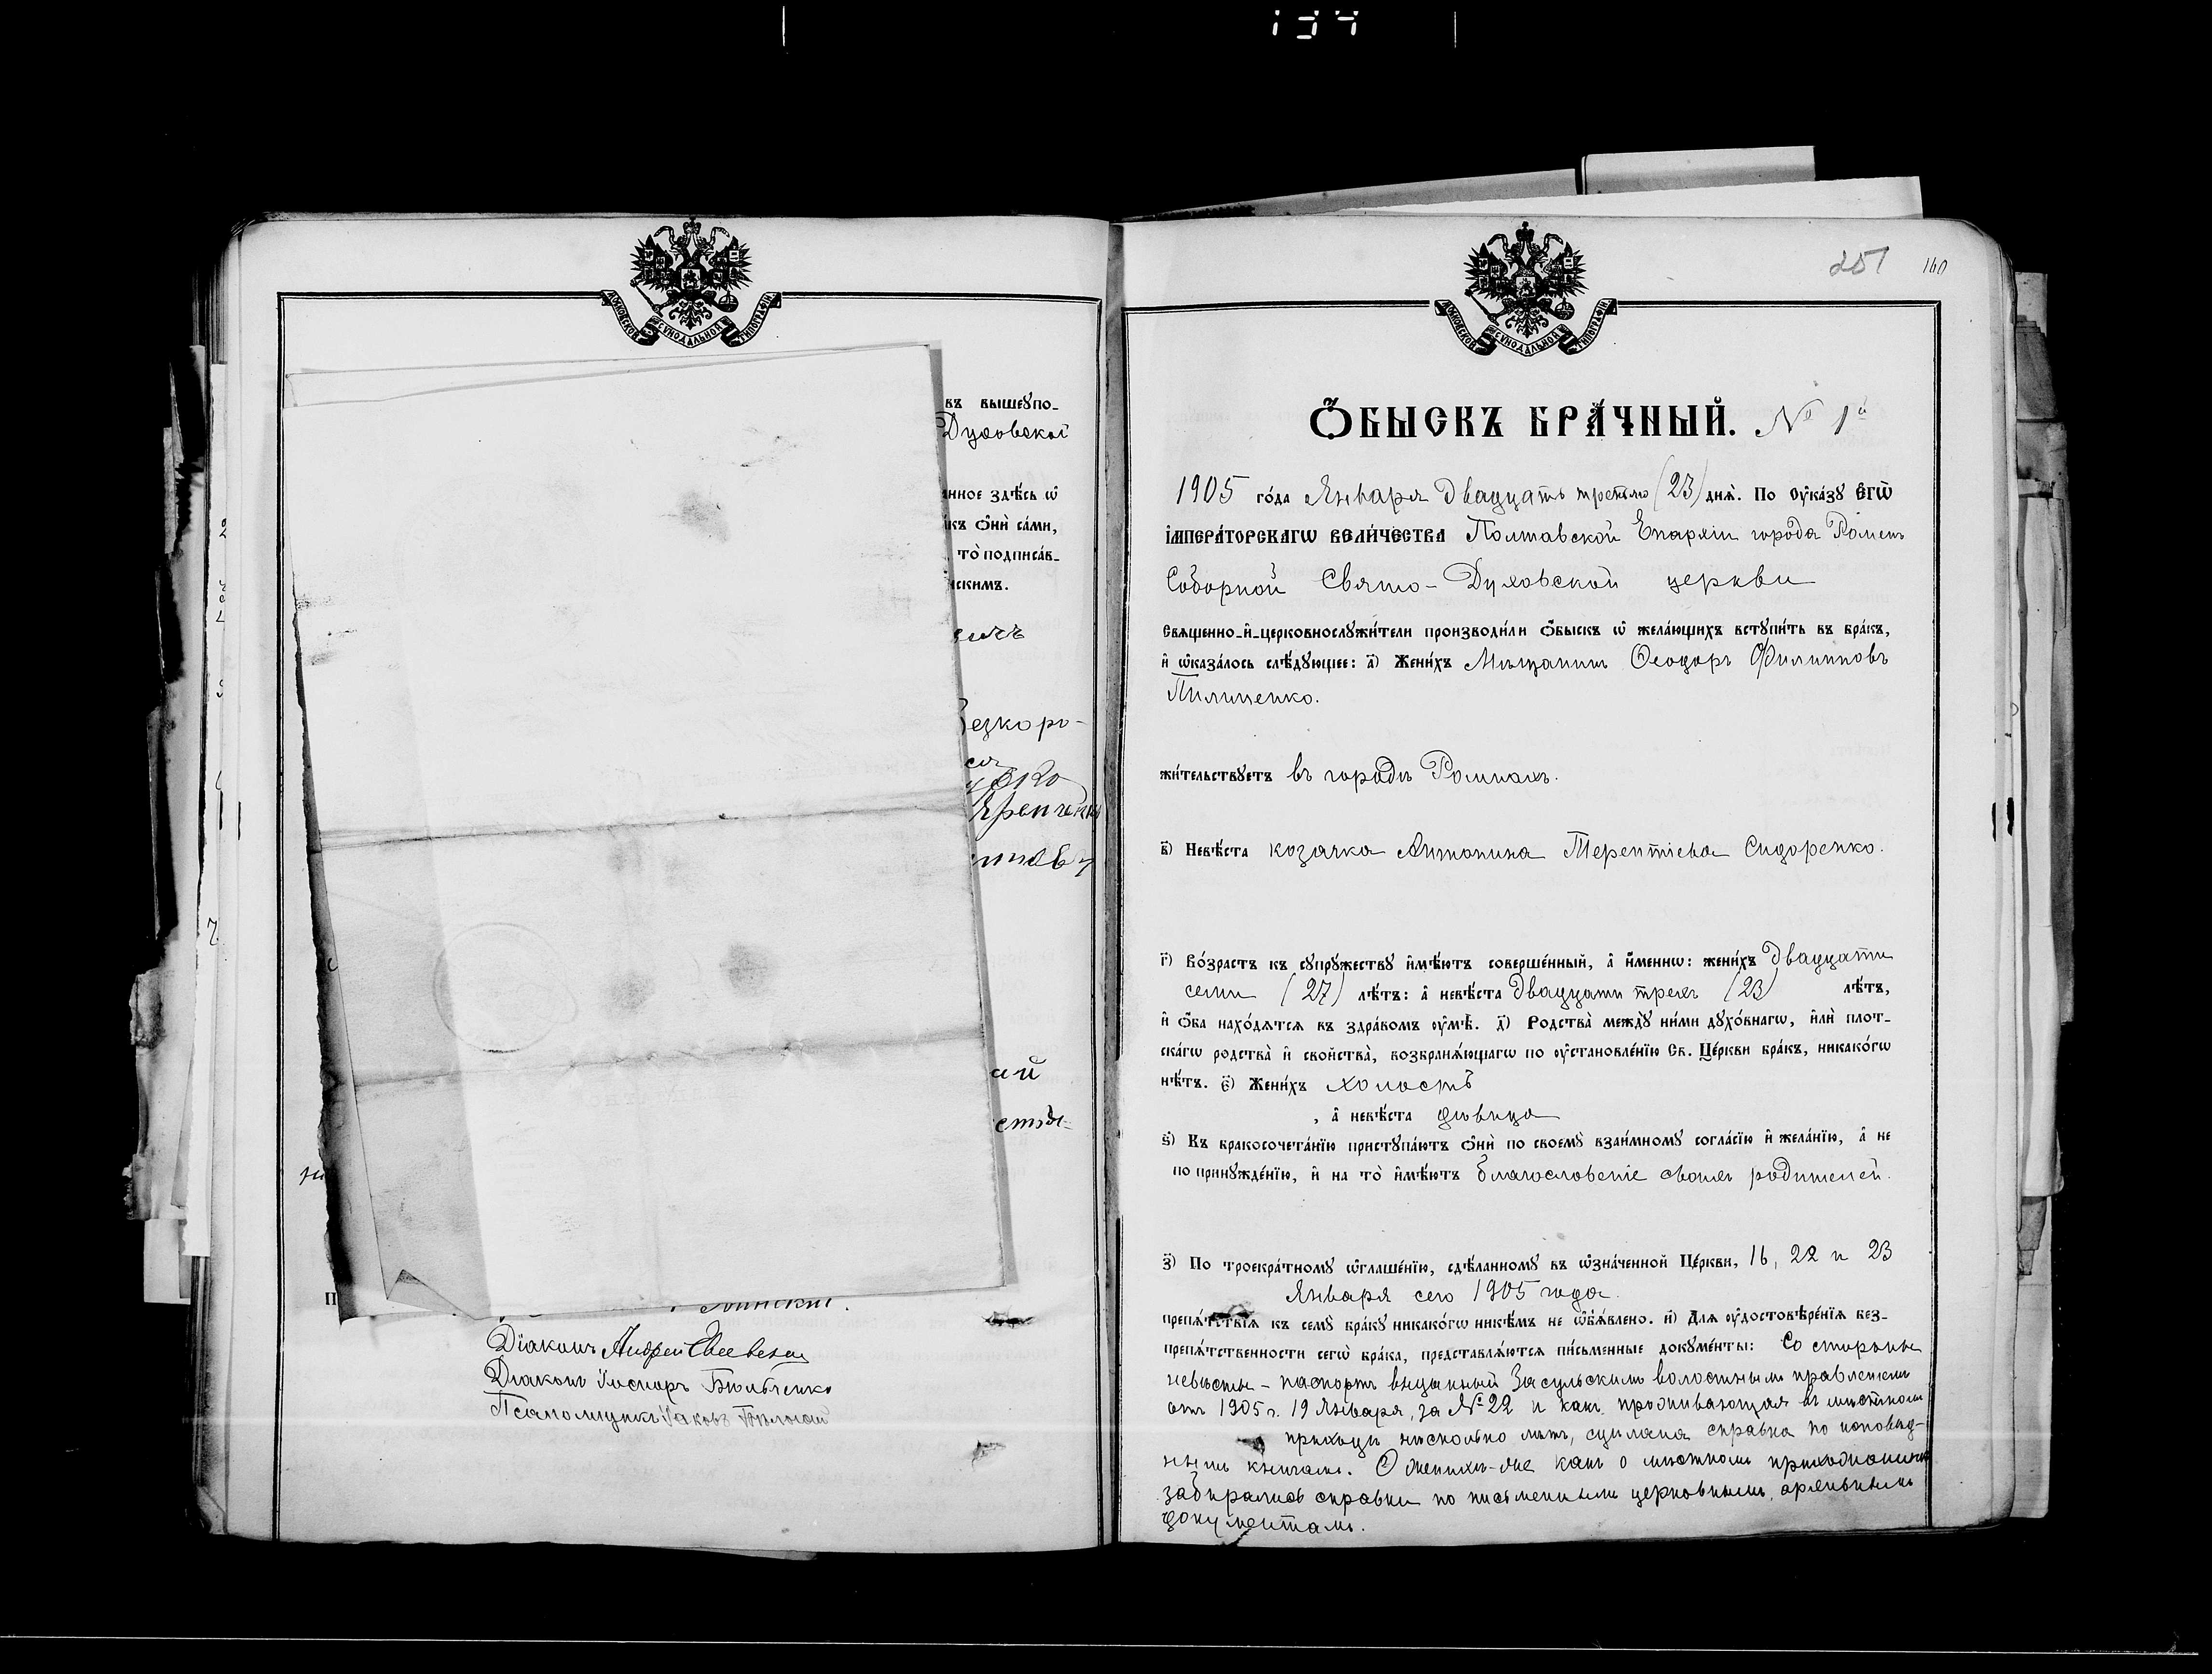 МОСКОВСКОЙ СУНОДАЛЬНОЙ ТИПОГРАФІИ
въ вышеупо-
Духовской
нное здѣсь ѡ
къ ѻни сами,
то подписав-
скимъ.
езкоро-
ай
Діаконъ Андрей
Діаконъ Іосифъ
Псаломщикъ Іаковъ
257 160
МОСКОВСКОЙ СУНОДАЛЬНОЙ ТИПОГРАФІИ
ѺБЫСКЪ БРА́ЧНЫЙ. № 1й
1905 го́да Января Двадцать третьяго (23) дня̀. По оука́зу ЕГѠ̀
ІМПЕРА́ТОРСКАГѠ ВЕЛИ́ЧЕСТВА Полтавской Епархіи города Роменъ
Соборной Свято-Духовской церкви
Священно-и-церковнослужи́тели производи́ли ѻ҆быскъ ѡ҆ жела́ющихъ вступи́ть въ бра́къ,
и҆ ѡ҆каза́лось слѣ́дующее: а҃) Жени́хъ Мѣщанинъ Ѳеодоръ Филипповъ
Пилипенко.
жи́тельствуетъ въ городѣ Ромнахъ.
в҃) Невѣ́ста козачка Антонина Терентіева Сидоренко.
г҃) Во́зрастъ къ супружеству и҆мѣ́ютъ соверше́нный, а҆ и҆́меннѡ: жени́хъ двадцати
семи (27) лѣ́тъ: а҆ невѣ́ста двадцати трехъ (23) лѣ́тъ,
и҆ ѻ҆́ба нахо́дятся въ здра́вомъ оумѣ̀. д҃) Родства̀ между ни́ми духо́внагѡ, и҆лѝ плот-
ска́гѡ родства̀ и҆ свойства̀, возбраня́ющагѡ по оустановле́нїю Св. Це́ркви бра́къ, никако́гѡ
нѣ́тъ. є҃) Жени́хъ холостъ
, а҆ невѣ́ста дѣвица
ѕ҃) Къ бракосочета́нїю приступа́ютъ ѻ҆нѝ по своемꙋ̀ взаи́мному согла́сїю и҆ жела́нїю, а҆ не
по принужде́нїю, и҆ на то̀ и҆мѣ́ютъ благословеніе своихъ родителей.
з҃) По троекра́тному ѡ҆глаше́нїю, сдѣ́ланному въ ѡ҆зна́ченной Це́ркви, 16, 22 и 23
Января сего 1905 года.
препя́тствїя къ сему бра́ку никако́гѡ никѣ́мъ не ѡ҆б̾я́влено. и҃) Для оудостовѣре́нїя без-
препя́тственности сегѡ̀ бра́ка, представля́ются пи́сьменные докуме́нты: Со стороны
невѣсты - паспортъ выданный Засульскимъ волостнымъ правленіемъ
отъ 1905 г. 19 Января, за № 22 и какъ проживающая въ мѣстномъ
приходѣ нѣсколько лѣтъ, сдѣлана справка по исповѣд-
нымъ книгамъ. О женихѣ-же какъ о мѣстномъ прихожанинѣ
забирались справки по письменнымъ церковнымъ, архивнымъ
документамъ.